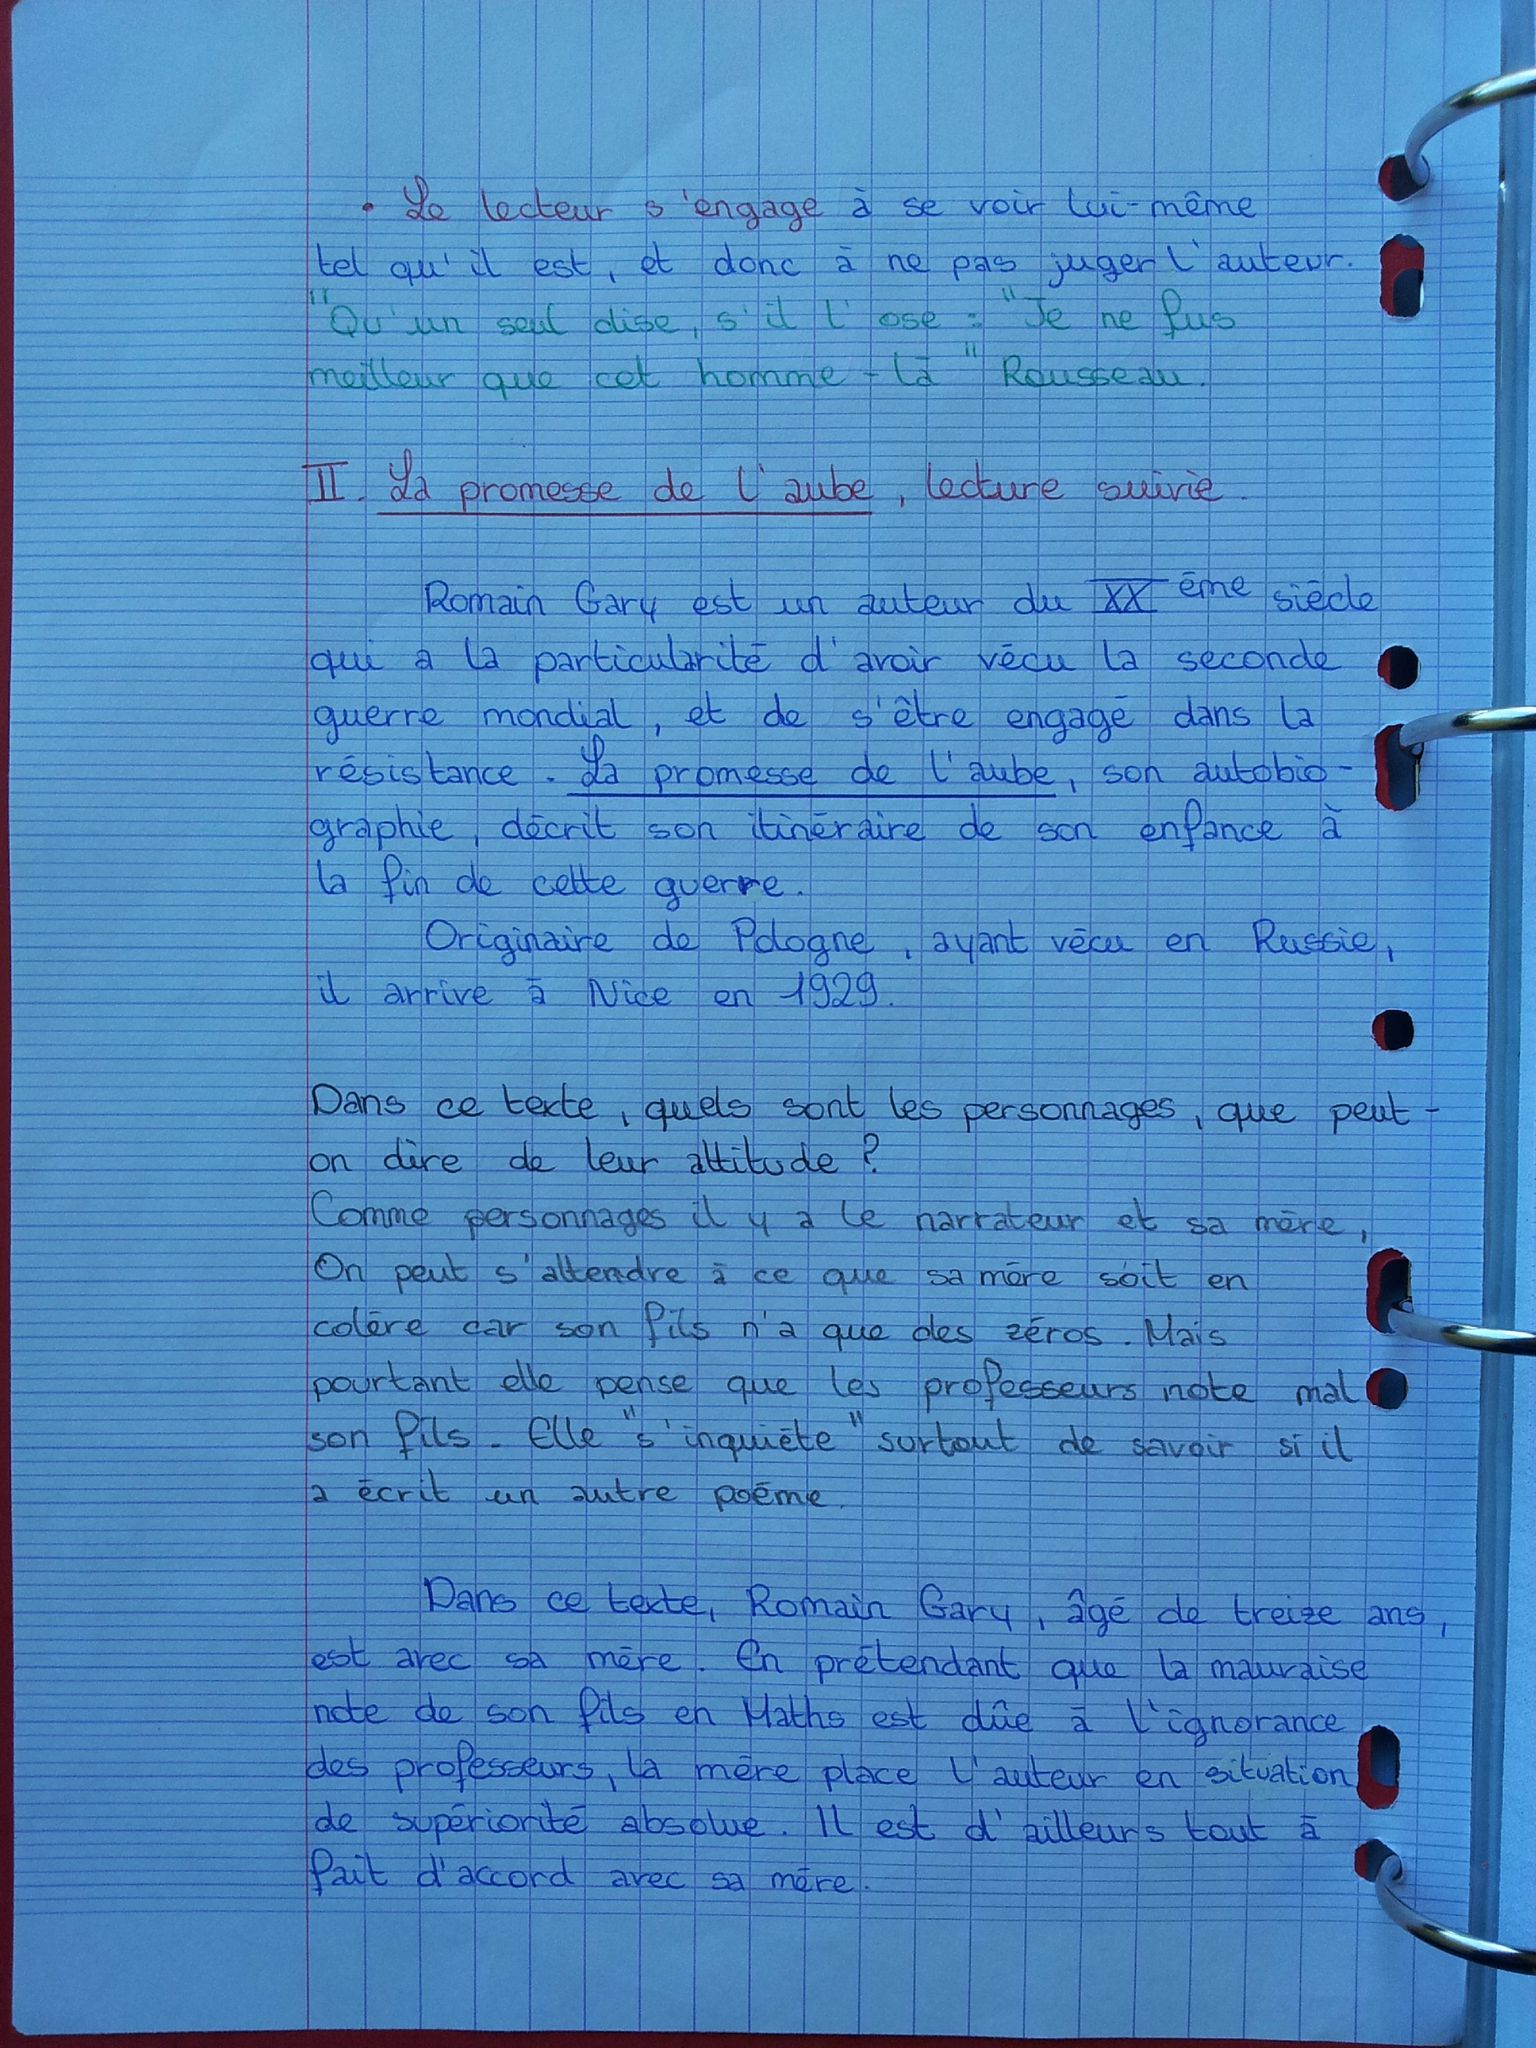 • Le lecteur s'engage à se voir lui-même
tel qu'il est, et donc à ne pas juger l'auteur.
"Qu'un seul dise, s'il l'ose : "Je ne fus
meilleur que cet homme-là" Rousseau.
II. La promesse de l'aube, lecture suivie.
Romain Gary est un auteur du XXème siècle
qui a la particularité d'avoir vécu la seconde
guerre mondial, et de s'être engagé dans la
résistance. La promesse de l'aube, son autobio-
graphie, décrit son itinéraire de son enfance à
la fin de cette guerre.
Originaire de Pologne, ayant vécu en Russie,
il arrive à Nice en 1929.
Dans ce texte, quels sont les personnages, que peut-
on dire de leur attitude ?
Comme personnages il y a le narrateur et sa mère,
On peut s'attendre à ce que sa mère soit en
colère car son fils n'a que des zéros. Mais
pourtant elle pense que les professeurs note mal
son fils. Elle "s'inquiète" surtout de savoir si il
a écrit un autre poème.
Dans ce texte, Romain Gary, âgé de treize ans,
est avec sa mère. En prétendant que la mauvaise
note de son fils en Maths est dûe à l'ignorance
des professeurs, la mère place l'auteur en situation
de supériorité absolue. Il est d'ailleurs tout à
fait d'accord avec sa mère.